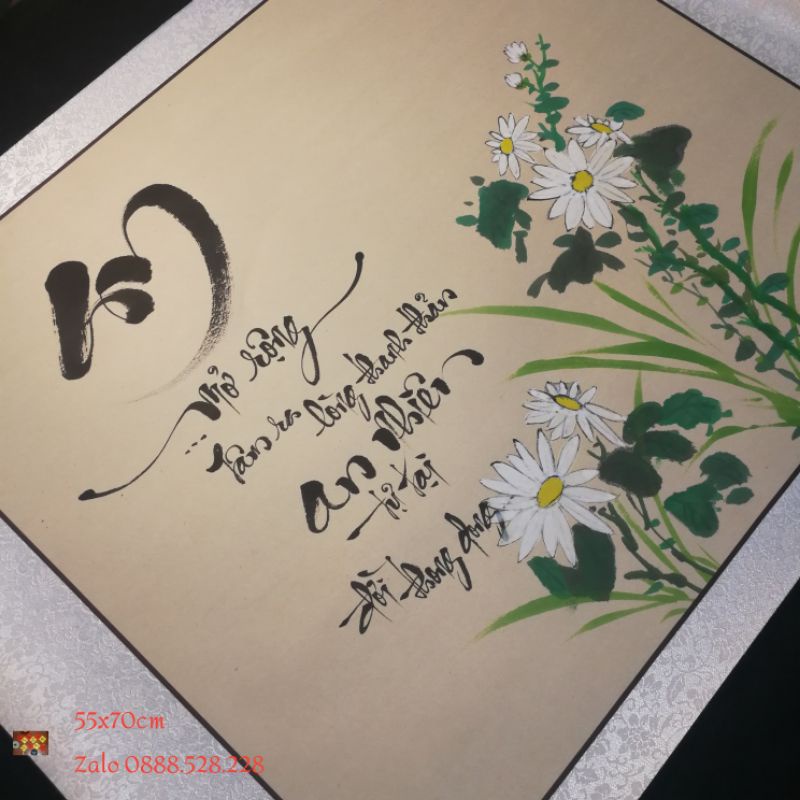 ... Mở rộng
tâm ra lòng thanh thản
an nhiên
tự tại
đời thong dong
55x70cm
Zalo 0888.528.228